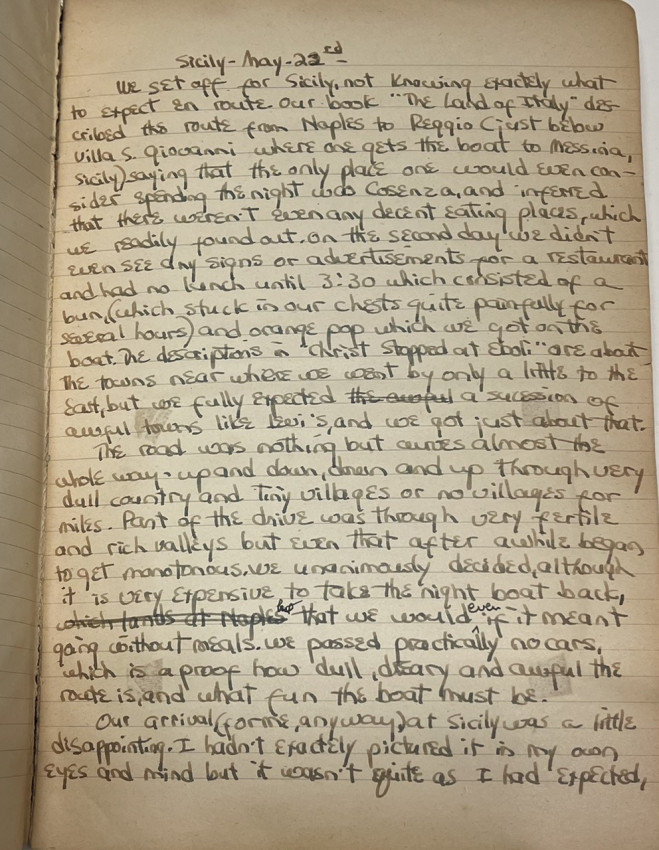 Sicily - May - 22nd -
We set off for Sicily, not knowing exactely what
to expect en route our book "The Land of Italy" des-
cribed the route from Naples to Reggio (just below
Villa S. Giovanni where one gets the boat to Messinia,
Sicily) saying that the only place one would even con-
sider spending the night was Cosenza, and inferred
that there weren't even any decent eating places, which
we readily found out. On the second day we didn't
even see any signs or advertisements for a restaurant
and had no lunch until 3:30 which consisted of a
bun, (which stuck in our chests quite painfully for
several hours) and orange pop which we got on the
boat. The descriptions in "Christ Stopped at Eboli" are about
the towns near where we went by only a little to the
east, but we fully expected the awful a sucession of
awful towns like Levi's, and we got just about that.
The road was nothing but curves almost the
whole way - up and down, down and up through very
dull country and tiny villages or no villages for
miles. Part of the drive was through very fertile
and rich valleys but even that after awhile began
to get monotonous. We unanimously decided, although
it is very expensive to take the night boat back,
which lands at Naples that we would even if it meant
going without meals. We passed practically no cars,
which is a proof how dull, dreary and awful the
route is, and what fun the boat must be.
Our arrival (for me, anyway) at Sicily was a little
disappointing. I hadn't exactely pictured it in my own
eyes and mind but it wasn't quite as I had expected,